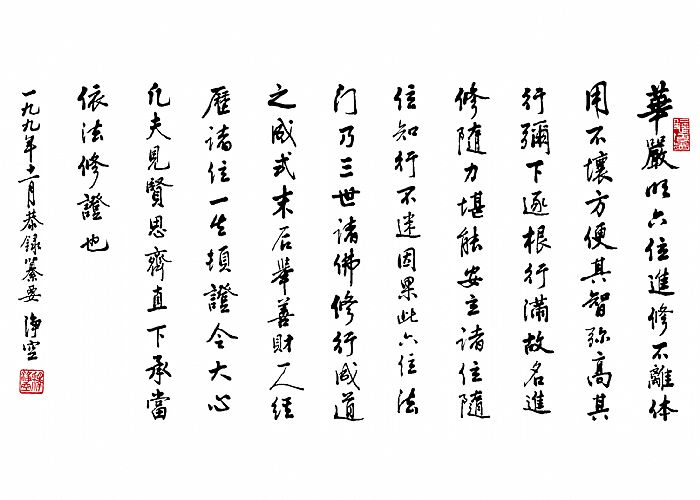 華嚴以六位進修不離体
用不壞方便其智弥高其
行彌下逐根行滿故名進
修隨力堪能安立諸位隨
位知行不迷因果此六位法
門乃三世諸佛修行成道
之成式末后舉善財一人經
歷諸位一生頓證令大心
凡夫見賢思齊直下承當
依法修證也
一九九年十一月恭錄纂要 淨空